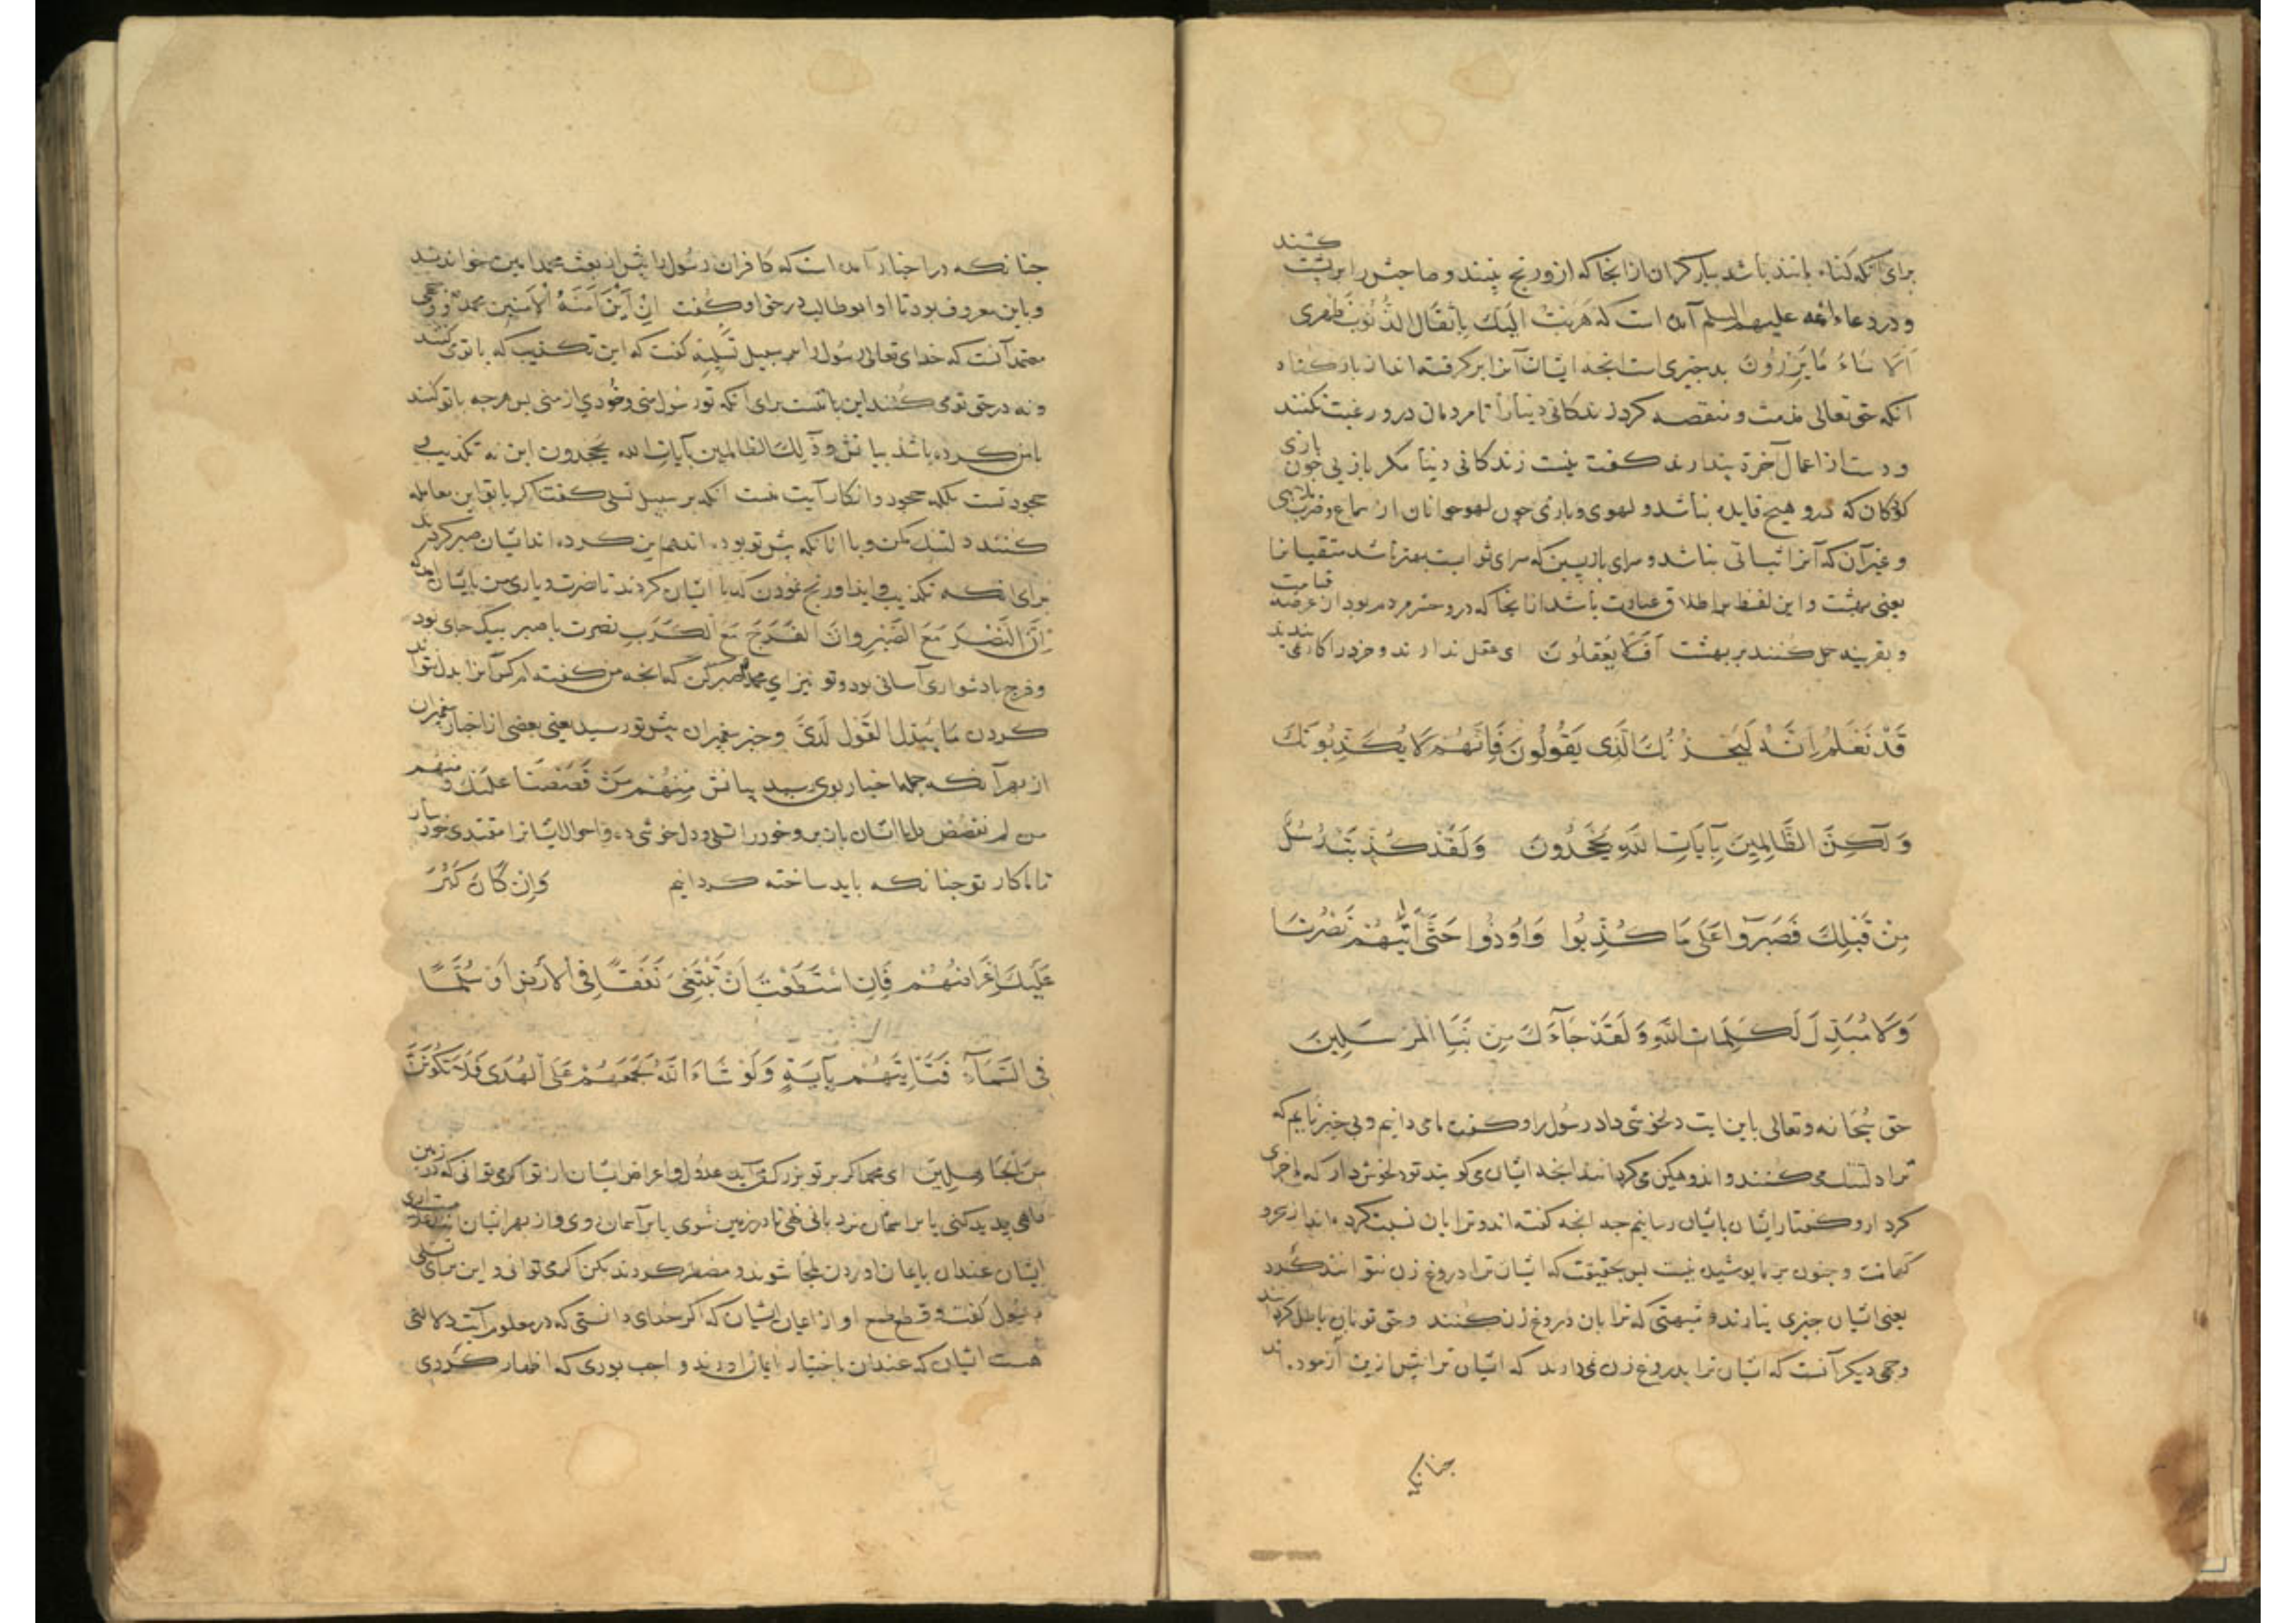 برای آنکه کناه مانند باشد ببار کران از انجا که ازو رنج بینند و صاحبش را بر پشت کشند
و در دعاء ائمه علیهم السلم آمده است که هربت الیک باثقال الذنوب علی ظهری
اَلَا سَاءَ مَا یَزِرُونَ بد چیزی است انجه ایشان آنرا بر کرفته اند از بار کناه
آنکه حق تعالی مذمت و منقصه کرد زندکانی دنیا را تا مردمان درو رغبت نکنند
و دست از اعمال آخرة بندارند کفت نیست زندکانی دنیا مکر بازیی چون بازی
کودکان که درو هیچ فایده نباشد و لهوی و بازئ چون لهو جوانان از سماع و ضرب
و غیر آن که آنرا ثباتی نباشد و سرای بازپسین که سرای ثواب است بهتر باشد متقیانرا
یعنی بهشت و این لفظ بر اطلاق عبارت باشد از انجا که درو حشر مردم بود از عرصه قیامت
و بقرینه حمل کنند بر بهشت اَفَلَا یَعْقِلُونَ ای عقل ندارند و خرد را کار نمی بندند
قَدْ نَعْلَمُ اِنَّهُ لَیَحْزُنُکَ الَّذِی یَقُولُونَ فَاِنَّهُمْ لَا یُکَذِّبُونَکَ
وَلٰکِنَّ الظَّالِمِینَ بِآیَاتِ اللّٰهِ یَجْحَدُونَ وَلَقَدْ کُذِّبَتْ رُسُلٌ
مِنْ قَبْلِکَ فَصَبَرُوا عَلَی مَا کُذِّبُوا وَاُوذُوا حَتَّی اَتٰیهُمْ نَصْرُنَا
وَلَا مُبَدِّلَ لِکَلِمَاتِ اللّٰهِ وَلَقَدْ جَآءَکَ مِنْ نَبَاِ الْمُرْسَلِینَ
حق سبحانه و تعالی باین ایت دلخوشی داد رسول را و کفت ما می دانیم و بی خبر نه ایم که
ترا دلتنک می کنند و اندوهکین می کرداند انجه ایشان می کویند تو دلخوش دار که ما جزای
کردار و کفتار ایشان بایشان رسانیم جه انجه کفته اند و ترا بان نسبت کرده اند از سحر و
کهانت و جنون بر ما پوشیده نیست پس بحقیقت که ایشان ترا دروغ زن نتوانند کرد
یعنی ایشان چیزی نیارند و شبهتی که ترا بان دروغ زن کنند و حق تو بان باطل کردانند
وجهی دیکر آنست که ایشان ترا بدروغ زن نمی دارند که ایشان ترا پیش ازین آزموده اند
جنانکه
جنانکه در اخبار آمده است که کافران رسول را پیش از بعثت محمد امین خواندند
و باین معروف بود تا ابوطالب در حق او کفت
معتمد آنست که خدای تعالی رسول را بر سبیل تسلیه کفت که این تکذیب که با تو می کنند
و نه در حق تو می کنند این با منست برای آنکه تو رسول منی و خود از منی پس هرجه با تو کنند
با من کرده باشند بیانش و لکن الظالمین بآیات الله یجحدون این نه تکذیب
جحود تست بلکه جحود و انکار آیت منست آنکه بر سبیل تسلی کفت اکر با تو این معامله
کنند دلتنک مکن و با انانکه پیش تو بوده اند هم این کرده اند ایشان صبر کردند
برای انکه تکذیب و ایذا و رنج نمودن که با ایشان کردند تا نصرت و یاری من بایشان آمد
اِنَّ النَّصْرَ مَعَ الصَّبْرِ وَاِنَّ الْفَرَجَ مَعَ الْکَرْبِ نصرت با صبر بیک جای بود
و فرج با دشواری آسانی بود و تو نیز ای محمد صبر کن که انجه من کفته ام کس آنرا بدل نتواند
کردن مَا یُبَدَّلُ الْقَوْلُ لَدَیَّ و خبر پیغمبران پیش تو رسید یعنی بعضی از اخبار پیغمبران
از بهر آنکه جمله اخبار بوی نرسید بیانش مِنْهُمْ مَنْ قَصَصْنَا عَلَیْکَ و منهم
من لم نقصص دل با ایشان باز بر و خود را تسلی و دل خوشی ده و احوال ایشانرا مقتدی خود ساز
تا ما کار تو جنانکه باید ساخته کردانیم وَاِنْ کَانَ کَبُرَ
عَلَیْکَ اِعْرَاضُهُمْ فَاِنِ اسْتَطَعْتَ اَنْ تَبْتَغِیَ نَفَقًا فِی الْاَرْضِ اَوْ سُلَّمًا
فِی السَّمَآءِ فَتَاْتِیَهُمْ بِآیَةٍ وَلَوْ شَاءَ اللّٰهُ لَجَمَعَهُمْ عَلَی الْهُدَی فَلَا تَکُونَنَّ
مِنَ الْجَاهِلِینَ ای محمد اکر بر تو بزرک می آید عدول و اعراض ایشان از تو اکر می توانی که در زمین
راهی پدید کنی یا بر اسمان نردبانی نهی تا در زمین شوی یا بر آسمان روی و از بهر ایشان
ایشان عند آن بایمان آوردن ملجا شوند و مضطر کردند بکن اکر می توانی و این برای تسلی
رسول کفت و قطع طمع او از ایمان ایشان که اکر خدای دانستی که در معلوم آیت دلالتی
هست ایشان که عند آن باختیار ایمان آورند واجب بودی که اظهار کردی